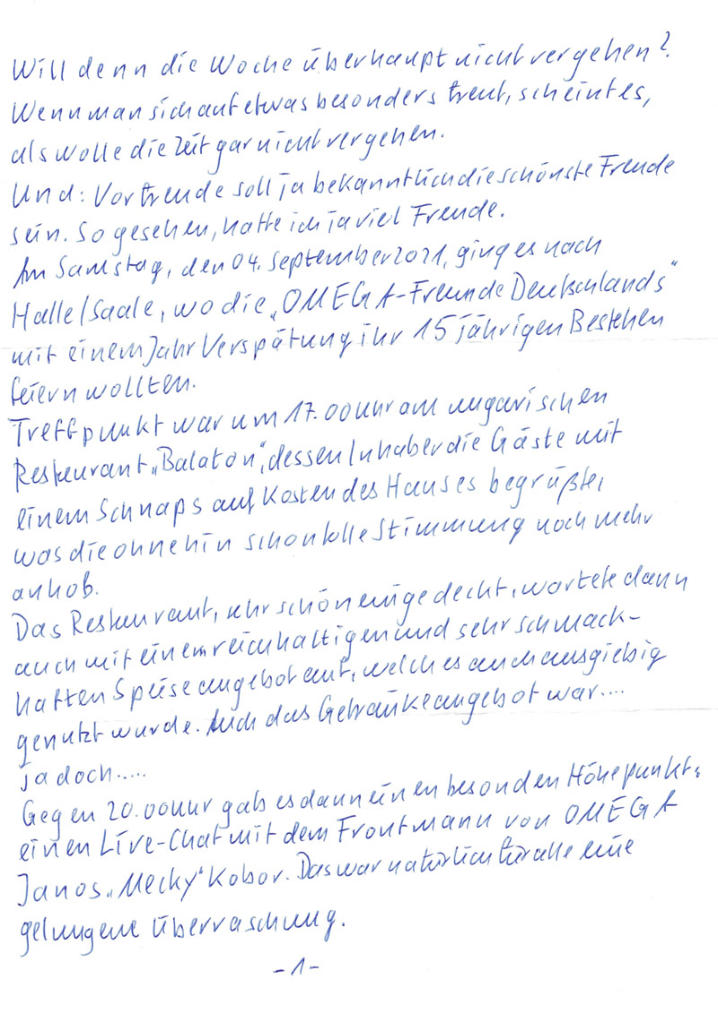 Will denn die Woche überhaupt nicht vergehen?
Wenn man sich auf etwas besonders freut, scheint es,
als wolle die Zeit gar nicht vergehen.
Und: Vorfreude soll ja bekanntlich die schönste Freude
sein. So gesehen, hatte ich ja viel Freude.
Am Samstag, den 04. September 2021, ging es nach
Halle/Saale, wo die „OMEGA-Freunde Deutschlands"
mit einem Jahr Verspätung ihr 15 jährigen Bestehen
feiern wollten.
Treffpunkt war um 17.00 Uhr am ungarischen
Restaurant „Balaton", dessen Inhaber die Gäste mit
einem Schnaps auf Kosten des Hauses begrüßte,
was die ohnehin schon tolle Stimmung noch mehr
anhob.
Das Restaurant, sehr schön eingedeckt, wartete dann
auch mit einem reichhaltigen und sehr schmack-
haften Speiseangebot auf, welches auch ausgiebig
genutzt wurde. Auch das Getränkeangebot war....
ja doch.....
Gegen 20.00 Uhr gab es dann einen besonden Höhepunkt:
einen Live-Chat mit dem Frontmann von OMEGA
Janos „Mecky" Kobor. Das war natürlich für alle eine
gelungene Überraschung.
-1-